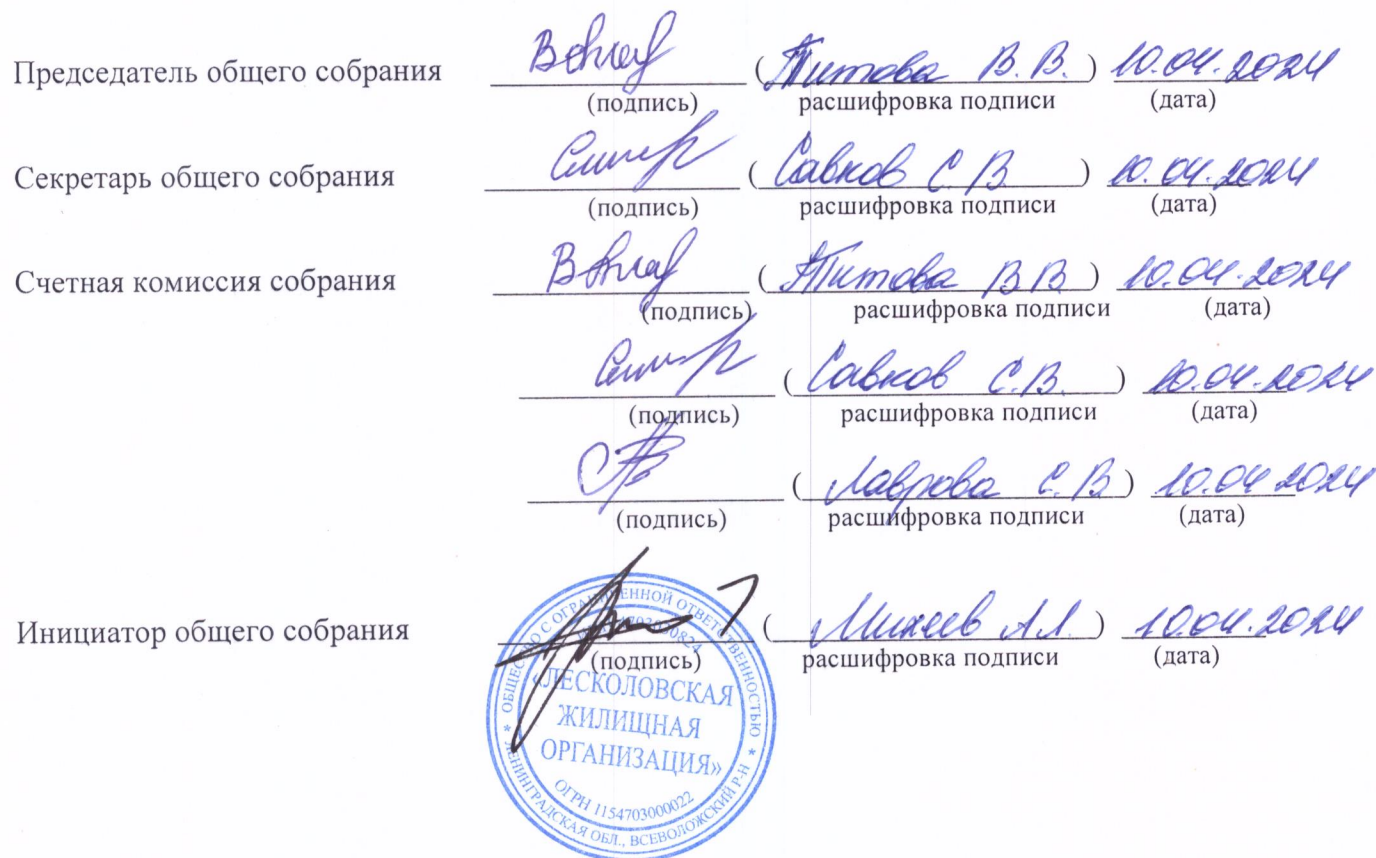 Председатель общего собрания (Титова В.В.) 10.04.2024
(подпись) расшифровка подписи (дата)
Секретарь общего собрания (Савков С.В.) 10.04.2024
(подпись) расшифровка подписи (дата)
Счетная комиссия собрания (Титова В.В) 10.04.2024
(подпись) расшифровка подписи (дата)
(Савков С.В.) 10.04.2024
(подпись) расшифровка подписи (дата)
(Лаврова С.В) 10.04.2024
(подпись) расшифровка подписи (дата)
Инициатор общего собрания (Михеев А.Л.) 10.04.2024
(подпись) расшифровка подписи (дата)
ОБЩЕСТВО С ОГРАНИЧЕННОЙ ОТВЕТСТВЕННОСТЬЮ
«ЛЕСКОЛОВСКАЯ
ЖИЛИЩНАЯ
ОРГАНИЗАЦИЯ»
ОГРН 1154703000022
* ЛЕНИНГРАДСКАЯ ОБЛ., ВСЕВОЛОЖСКИЙ Р-Н *